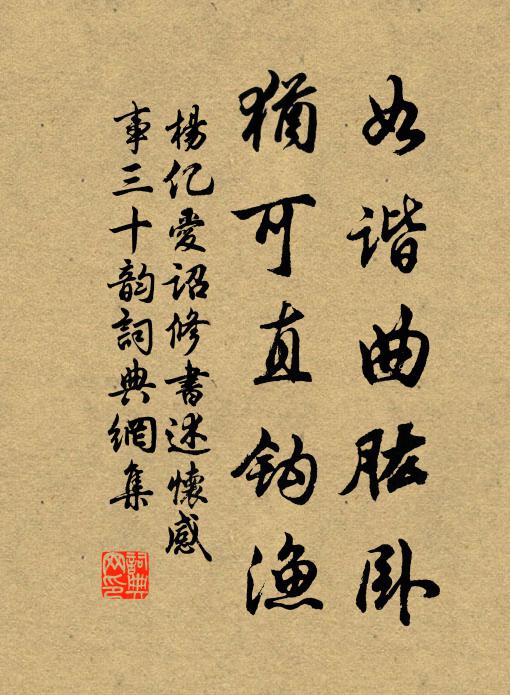 如谐曲肱卧
犹可直钩渔
杨亿爱诏修书述怀感
事三十韵詞典網集
詞典
网印